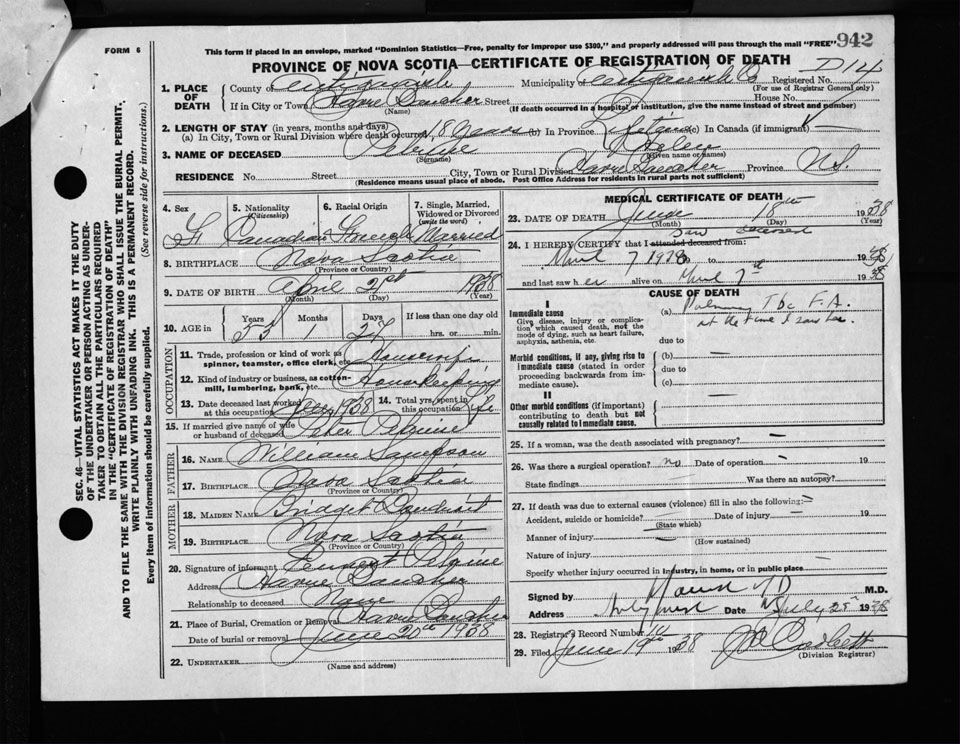 942
FORM 6
This form if placed in an envelope, marked "Dominion Statistics—Free, penalty for improper use $300," and properly addressed will pass through the mail "FREE"
PROVINCE OF NOVA SCOTIA—CERTIFICATE OF REGISTRATION OF DEATH
1. PLACE OF DEATH
County of Antigonish Municipality of Antigonish Co Registered No. D14
(For use of Registrar General only)
If in City or Town Havre Boucher Street House No.
(Name) (If death occurred in a hospital or institution, give the name instead of street and number)
2. LENGTH OF STAY (in years, months and days)
(a) In City, Town or Rural Division where death occurred 18 years (b) In Province (c) In Canada (if immigrant)
3. NAME OF DECEASED Helen
(Surname) (Given name or names)
RESIDENCE No. Street City, Town or Rural Division Havre Boucher Province N.S.
(Residence means usual place of abode. Post Office Address for residents in rural parts not sufficient)
4. Sex
5. Nationality (Citizenship)
6. Racial Origin
7. Single, Married, Widowed or Divorced (write the word)
F Canadian French Married
8. BIRTHPLACE Nova Scotia
(Province or Country)
9. DATE OF BIRTH April 21st 1938
(Month) (Day) (Year)
10. AGE in Years Months Days If less than one day
53 1 27 hrs. or min.
OCCUPATION
11. Trade, profession or kind of work as spinner, teamster, office clerk, etc. Housewife
12. Kind of industry or business, as cotton-mill, lumbering, bank, etc. Housekeeping
13. Date deceased last worked at this occupation 1938
14. Total yrs. spent in this occupation Life
15. If married give name of wife or husband of deceased Peter
FATHER
16. NAME William Sampson
17. BIRTHPLACE Nova Scotia
(Province or Country)
MOTHER
18. MAIDEN NAME Bridget
19. BIRTHPLACE Nova Scotia
(Province or Country)
20. Signature of informant
Address Havre Boucher
Relationship to deceased None
21. Place of Burial, Cremation or Removal Havre Boucher
Date of burial or removal June 20th 1938
22. UNDERTAKER
(Name and address)
MEDICAL CERTIFICATE OF DEATH
23. DATE OF DEATH June 18th 1938
(Month) (Day) (Year)
saw deceased
24. I HEREBY CERTIFY that I attended deceased from:
7 1938 to 1938
and last saw her alive on 7th 1938
CAUSE OF DEATH
I
Immediate cause
Give disease, injury or complication which caused death, not the mode of dying, such as heart failure, asphyxia, asthenia, etc.
(a) Pulmonary Tbc F.A.
at the time I saw her
due to
Morbid conditions, if any, giving rise to immediate cause (stated in order proceeding backwards from immediate cause).
(b) —
due to
(c) —
II
Other morbid conditions (if important) contributing to death but not causally related to immediate cause.
25. If a woman, was the death associated with pregnancy? —
26. Was there a surgical operation? no Date of operation — 19
State findings Was there an autopsy?
27. If death was due to external causes (violence) fill in also the following:
Accident, suicide or homicide? Date of injury — 19
(State which)
Manner of injury —
(How sustained)
Nature of injury
Specify whether injury occurred in Industry, in home, or in public place —
Signed by M.D.
Address Date July 25th 1938
28. Registrar's Record Number 14
29. Filed June 19th 1938
(Division Registrar)
SEC. 46—VITAL STATISTICS ACT MAKES IT THE DUTY
OF THE UNDERTAKER OR PERSON ACTING AS UNDER-
TAKER TO OBTAIN ALL THE PARTICULARS REQUIRED
IN THE "CERTIFICATE OF REGISTRATION OF DEATH"
AND TO FILE THE SAME WITH THE DIVISION REGISTRAR WHO SHALL ISSUE THE BURIAL PERMIT.
WRITE PLAINLY WITH UNFADING INK. THIS IS A PERMANENT RECORD.
(See reverse side for instructions.)
Every item of information should be carefully supplied.